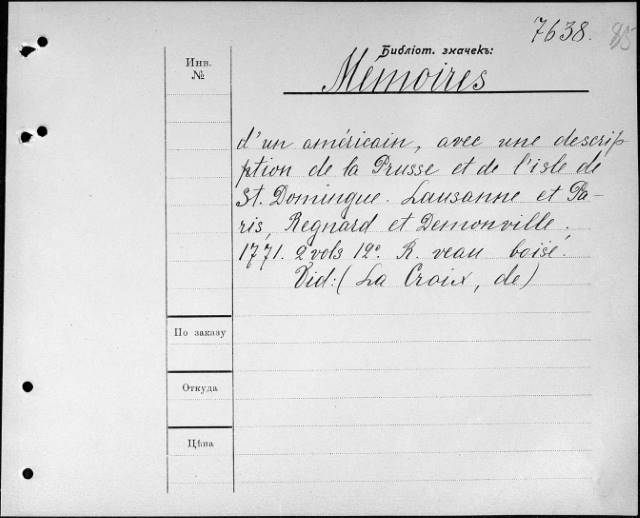 7638. 85
Библіот. значекъ:
Инв.
№
Mémoires
d'un américain, avec une descrip
ption de la Prusse et de l'isle de
St. Domingue. Lausanne et Pa-
ris, Regnard et Demonville.
1771. 2 vols 12º. R. veau boisé.
Vid: ( La Croix, de)
По заказу
Откуда
Цѣна